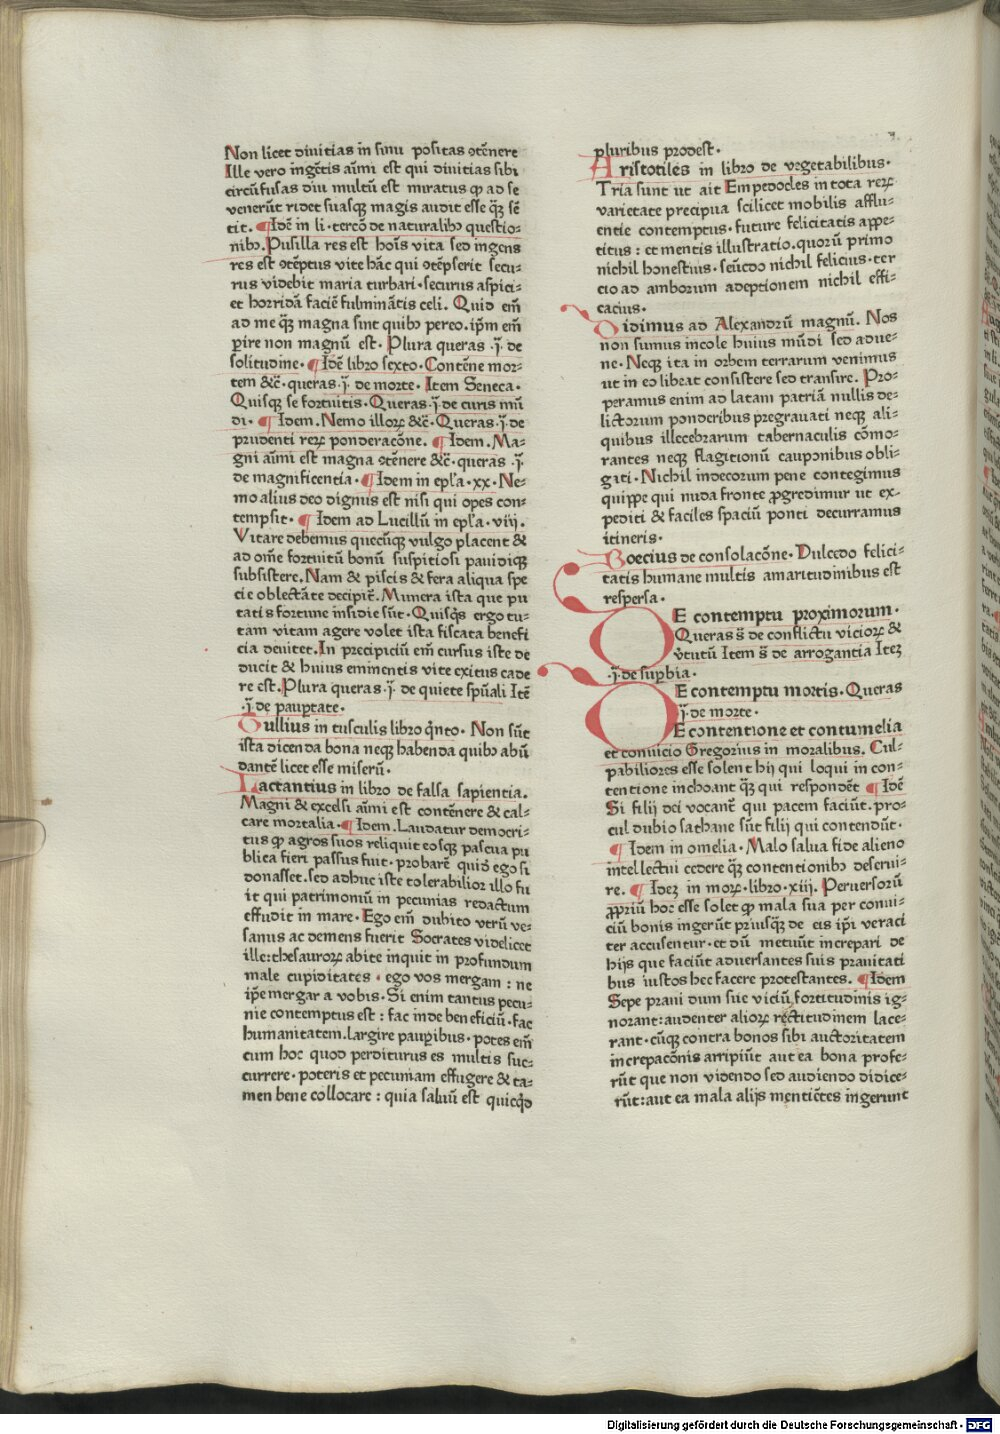 Non licet diuitias in sinu positas ꝯtēnere
Ille vero ingētis aīmi est qui diuitias sibi
circūfusas diu multū est miratus ꝙ ad se
venerūt ridet suasqꝫ magis audit esse q̄ꝫ sē
tit. ¶ Idē in li · tercō de naturalibꝫ questio⸗
nibꝫ. Pusilla res est hoīs vita sed ingens
res est ꝯtēptus vite hāc qui ꝯtēpserit secu⸗
rus videbit maria turbari · securus aspici⸗
et horridā faciē fulminātis celi. Quid em̄
ad me q̄ꝫ magna sint quibꝫ pereo. ip̄m em̄
ꝑire non magnū est · Plura queras · j̄ · de
solitudine · ¶ Idē libro sexto · Contēne mor⸗
tem &c̄ · queras · j̄ · de morte · Item Seneca ·
Quisqꝫ se fortuitis · Queras · j̄ · de curis mū
di · ¶ Idem. Nemo illoꝝ &c̄ · Queras · j̄ · de
prudenti reꝝ ponderacōne. ¶ Idem. Ma⸗
gni aīmi est magna ꝯtēnere &c̄ · queras · j̄ ·
de magnificentia · ¶ Idem in epl̄a · xx · Ne⸗
mo alius deo dignus est nisi qui opes con⸗
tempsit · ¶ Idem ad Lucillū in epl̄a · viij ·
Vitare debemus quecūqꝫ vulgo placent &
ad om̄e fortuitū bonū suspitiosi pauidiqꝫ
subsistere. Nam & piscis & fera aliqua spe
cie oblectāte decipit̄. Munera ista que pu
tatis fortune insidie sūt · Quisq̄s ergo tu⸗
tam vitam agere volet ista fiscata benefi
cia deuitet. In precipiciū em̄ cursus iste de
ducit & huius eminentis vite exitus cade
re est. Plura queras · j̄ · de quiete spūali Itē
· j̄ · de pauꝑtate ·
Tullius in tusculis libro q̄nto · Non sūt
ista dicenda bona neqꝫ habenda quibꝫ abū
dantē licet esse miserū ·
Lactantius in libro de falsa sapientia.
Magni & excelsi aīmi est contēnere & cal⸗
care mortalia · ¶ Idem. Laudatur democri⸗
tus ꝙ agros suos reliquit eosqꝫ pascua pu
blica fieri passus fuit · probarē quid̓ ego si
donasset. sed adhuc iste tolerabilior illo fu
it qui patrimoniū in pecunias redactum
effudit in mare · Ego em̄ dubito vtrū ve⸗
sanus ac demens fuerit Socrates videlicet
ille: thesauroꝝ abite inquit in profundum
male cupiditates · ego vos mergam : ne
ip̄e mergar a vobis · Si enim tantus pecu⸗
nie contemptus est : fac inde beneficiū · fac
humanitatem. largire pauꝑibus · potes em̄
cum hoc quod perditurus es multis suc⸗
currere · poteris et pecuniam effugere & ta⸗
men bene collocare : quia saluū est quicq̄d
pluribus prodest ·
Aristotiles in libro de vegetabilibus ·
Tria sunt ut ait Empedocles in tota reꝝ
varietate precipua scilicet mobilis afflu⸗
entie contemptus · future felicitatis appe⸗
titus : et mentis illustratio. quorū primo
nichil honestius · secūdo nichil felicius · ter
cio ad amborum adeptionem nichil effi⸗
cacius ·
Didimus ad Alexandrū magnū. Nos
non sumus incole huius mūdi sed adue⸗
ne · Neqꝫ ita in orbem terrarum venimus
ut in eo libeat consistere sed transire. Pro⸗
peramus enim ad latam patriā nullis de⸗
lictorum ponderibus pregrauati neqꝫ ali⸗
quibus illecebrarum tabernaculis cōmo⸗
rantes neqꝫ flagitionū cauponibus obli⸗
gati · Nichil indecorum pene contegimus
quippe qui nuda fronte ꝓgredimur ut ex⸗
pediti & faciles spaciū ponti decurramus
itineris ·
Boecius de consolacōne · Dulcedo felici⸗
tatis humane multis amaritudinibus est
respersa ·
DE contemptu proximorum ·
Queras s̄ de conflictu vicioꝝ &
v̄tutū Item s̄ de arrogantia Iteꝫ
· j̄ · de suꝑbia ·
DE contemptu mortis · Queras
· j̄ · de morte ·
DE contentione et contumelia
et conuicio Gregorius in moralibus. Cul⸗
pabiliores esse solent hij qui loqui in con⸗
tentione inchoant q̄ꝫ qui respondēt ¶ Idē
Si filij dei vocant̄ qui pacem faciūt · pro⸗
cul dubio sathane sūt filij qui contendūt ·
¶ Idem in omelia · Malo salua fide alieno
intellectui cedere q̄ꝫ contentionibꝫ deserui⸗
re. ¶ Ideꝫ in moꝝ · libro · xiij. Peruersorū
ꝓpriū hoc esse solet ꝙ mala sua per conui⸗
ciū bonis ingerūt priusq̄ꝫ de eis ip̄i veraci
ter accusentur · et dū metuūt increpari de
hijs que faciūt aduersantes suis prauitati
bus iustos hec facere protestantes. ¶ Idem
Sepe praui dum sue viciū fortitudinis ig⸗
norant: audenter alioꝝ rectitudinem lace⸗
rant · cūqꝫ contra bonos sibi auctoritatem
increpacōnis arripiūt aut ea bona profe⸗
rūt que non videndo sed audiendo didice⸗
rūt: aut ea mala alijs mentiētes ingerunt
Digitalisierung gefördert durch die Deutsche Forschungsgemeinschaft · DFG